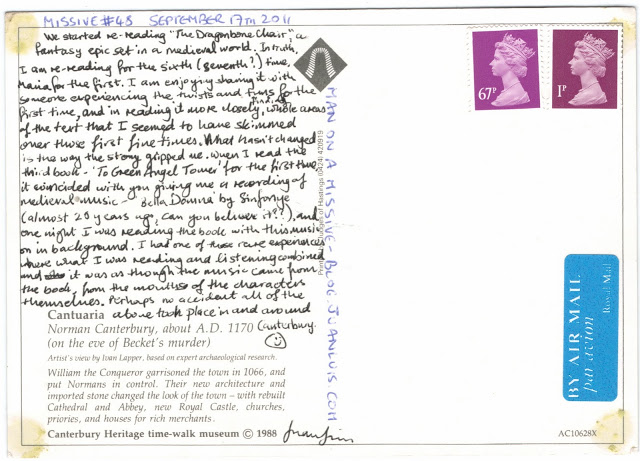 MISSIVE #48 SEPTEMBER 17TH 2011
We started re-reading "The Dragonbone Chair", a
fantasy epic set in a medieval world. In truth,
I am re-reading for the sixth (seventh?) time,
Maria for the first. I am enjoying sharing it with
someone experiencing the twists and turns for the
first time, and in reading it more closely, finding whole areas
of the text that I seemed to have skimmed
over those first five times. What hasn't changed
is the way the story gripped me. When I read the
third book - 'To Green Angel Tower' for the first time
it coincided with you giving me a recording of
medieval music - 'Bella Domna' by Sinfonye
(almost 20 years ago, can you believe it??), and
one night I was reading the book with this music
on in background. I had one of those rare experiences
where what I was reading and listening combined
and it was as though the music came from
the book, from the mouths of the characters
themselves. Perhaps no accident all of the
above took place in and around
Canterbury.
Cantuaria
Norman Canterbury, about A.D. 1170
(on the eve of Becket's murder)
Artist's view by Ivan Lapper, based on expert archaeological research.
William the Conqueror garrisoned the town in 1066, and
put Normans in control. Their new architecture and
imported stone changed the look of the town – with rebuilt
Cathedral and Abbey, new Royal Castle, churches,
priories, and houses for rich merchants.
Canterbury Heritage time-walk museum © 1988
MAN ON A MISSIVE - BLOG.JUANLUIS.COM
of Hastings (0424) 420919
67P
1P
BY AIR MAIL
par avion
Royal Mail
AC10628X